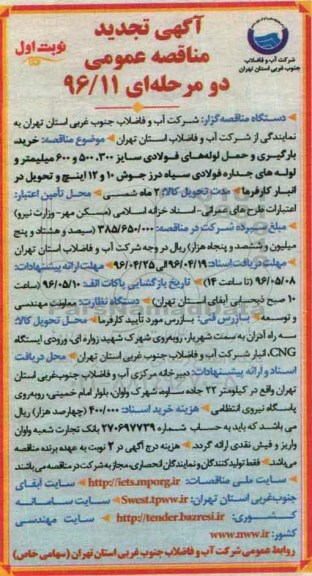 آگهی تجدید
مناقصه عمومی
دو مرحله‌ای ۹۶/۱۱
نوبت اول
شرکت آب و فاضلاب
جنوب غربی استان تهران
دستگاه مناقصه‌گزار: شرکت آب و فاضلاب جنوب غربی استان تهران به
نمایندگی از شرکت آب و فاضلاب استان تهران موضوع مناقصه: خرید،
بارگیری و حمل لوله‌های فولادی سایز ۳۰۰، ۵۰۰ و ۶۰۰ میلیمتر و
لوله های جداره فولادی سیاه درز جوش ۱۰ و ۱۲ اینچ و تحویل در
انبار کارفرما مدت تحویل کالا: ۲ ماه شمسی محل تأمین اعتبار:
اعتبارات طرح های عمرانی- اسناد خزانه اسلامی (مسکن مهر- وزارت نیرو)
مبلغ سپرده شرکت در مناقصه: ۳۸۵/۶۵۰/۰۰۰ (سیصد و هشتاد و پنج
میلیون و ششصد و پنجاه هزار) ریال در وجه شرکت آب و فاضلاب استان تهران
مهلت دریافت اسناد: ۹۶/۰۴/۱۹ الی ۹۶/۰۴/۲۵ مهلت ارائه پیشنهادات:
۹۶/۰۵/۰۸ (تا ساعت ۱۴) تاریخ بازگشایی پاکات الف: ۹۶/۰۵/۱۰ (ساعت
۱۰ صبح ذیحسابی آبفای استان تهران) دستگاه نظارت: معاونت مهندسی
و توسعه بازرس فنی: بازرس مورد تأیید کارفرما محل تحویل کالا:
سه راه آدران به سمت شهریار، روبه‌روی شهرک شهید زواره ای، ورودی ایستگاه
CNG، انبار شرکت آب و فاضلاب جنوب غربی استان تهران محل دریافت
اسناد و ارائه پیشنهادات: دبیرخانه مرکزی آب و فاضلاب جنوب غربی استان
تهران واقع در کیلومتر ۲۲ جاده ساوه، شهرک واوان، بلوار امام خمینی، روبه‌روی
پاسگاه نیروی انتظامی هزینه خرید اسناد: ۴۰۰/۰۰۰ (چهارصد هزار) ریال
می باشد که باید به حساب شماره ۲۷۰۶۹۷۷۳۹ بانک تجارت شعبه واوان
واریز و فیش نقدی ارائه گردد. هزینه درج آگهی در ۲ نوبت به عهده برنده مناقصه
می‌باشد. فقط تولیدکنندگان و نمایندگان انحصاری، مجاز به شرکت در مناقصه می باشند
سایت ملی مناقصات: http://iets.mporg.ir سایت آبفای
جنوب‌غربی استان تهران: Swest.tpww.ir سایت سامانه
کشوری: http://tender.bazresi.ir سایت مهندسی
کشور: www.nww.ir
روابط عمومی شرکت آب و فاضلاب جنوب غربی استان تهران (سهامی خاص)